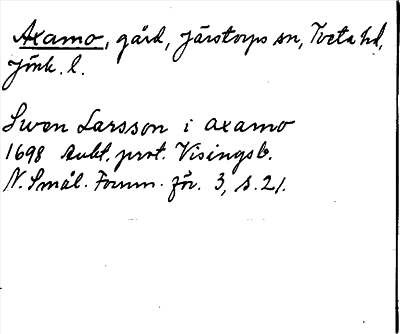 Axamo, gård, Järstorps sn, Tveta hd,
Jönk. l.
Swen Larsson i axamo
1698 Aukt. prot. Visingsb.
N. Smål. Fornm. för. 3, s. 21.